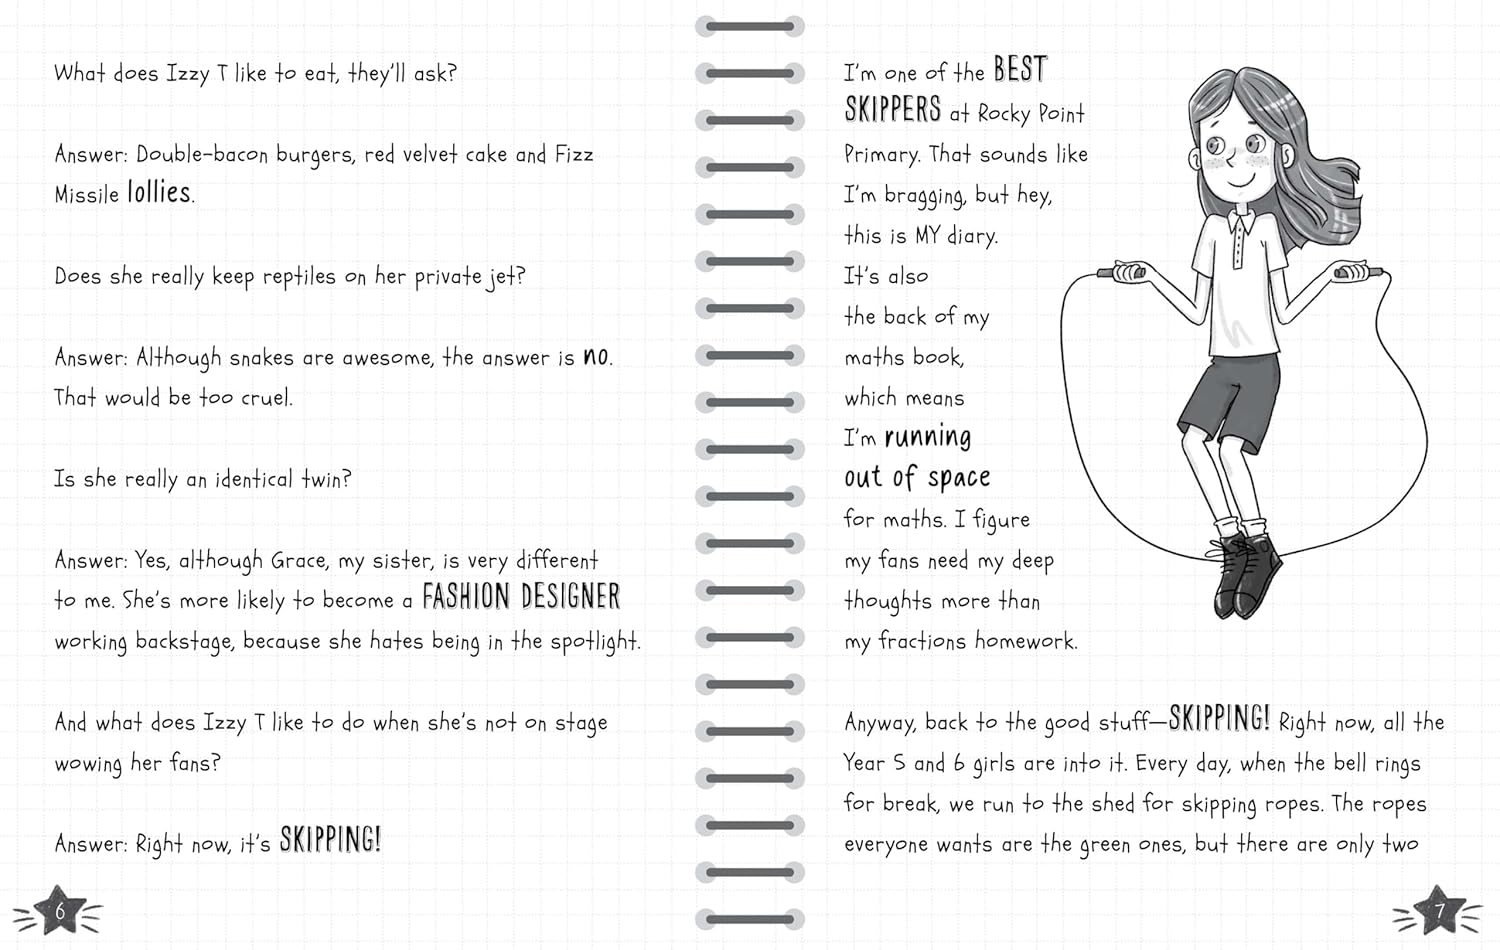 What does Izzy T like to eat, they'll ask?
Answer: Double-bacon burgers, red velvet cake and Fizz
Missile lollies.
Does she really keep reptiles on her private jet?
Answer: Although snakes are awesome, the answer is no.
That would be too cruel.
Is she really an identical twin?
Answer: Yes, although Grace, my sister, is very different
to me. She's more likely to become a FASHION DESIGNER
working backstage, because she hates being in the spotlight.
And what does Izzy T like to do when she's not on stage
wowing her fans?
Answer: Right now, it's SKIPPING!
6
I'm one of the BEST
SKIPPERS at Rocky Point
Primary. That sounds like
I'm bragging, but hey,
this is MY diary.
It's also
the back of my
maths book,
which means
I'm running
out of space
for maths. I figure
my fans need my deep
thoughts more than
my fractions homework.
Anyway, back to the good stuff—SKIPPING! Right now, all the
Year 5 and 6 girls are into it. Every day, when the bell rings
for break, we run to the shed for skipping ropes. The ropes
everyone wants are the green ones, but there are only two
7